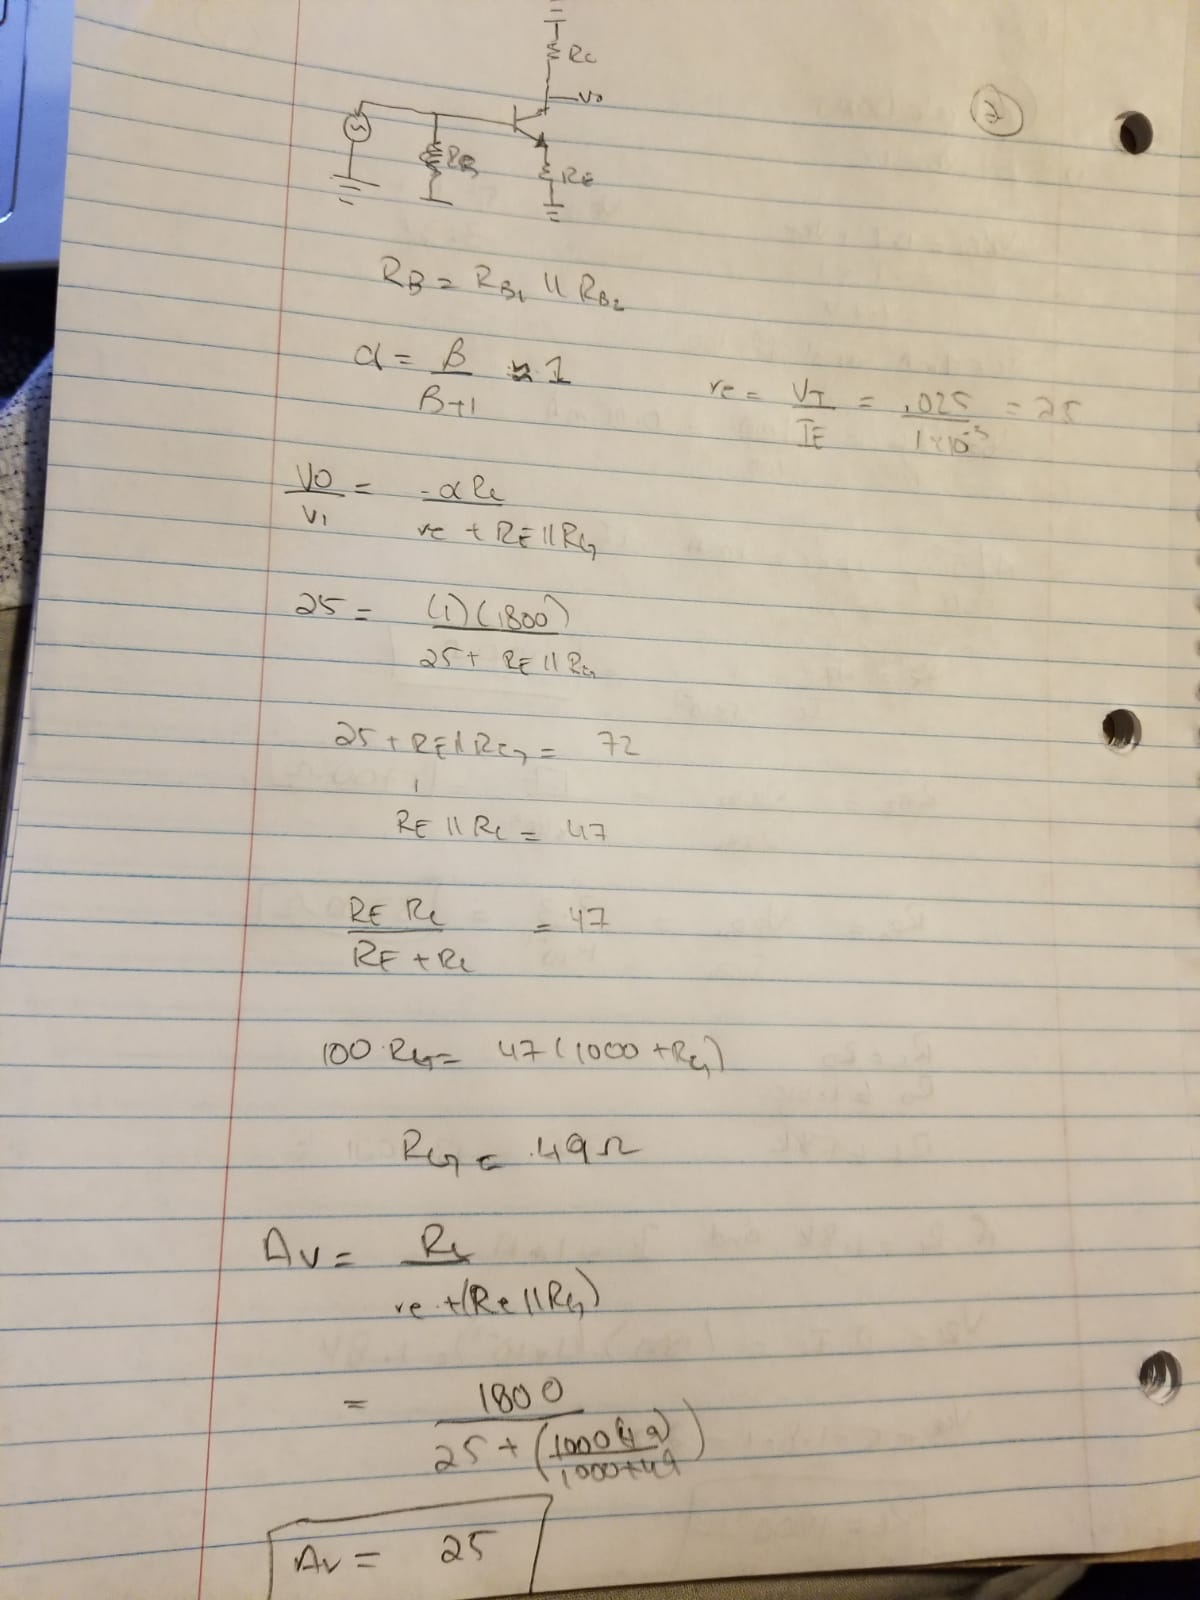 Rc
Vo
2
RB
RE
RB = RB1 || RB2
α = β / β+1 ≈ 1
re = VT / IE = .025 / 1x10^-3 = 25
Vo / Vi = -α Rc / re + RE || RG
25 = (1)(1800) / 25 + RE || RG
25 + RE || RG = 72
RE || Rc = 47
RE Rc / RE + Rc = 47
100 RG = 47 (1000 + RG)
RG = 49Ω
Av = Rc / re + (Re || RG)
= 1800 / 25 + (1000(49) / 1000+49)
Av = 25